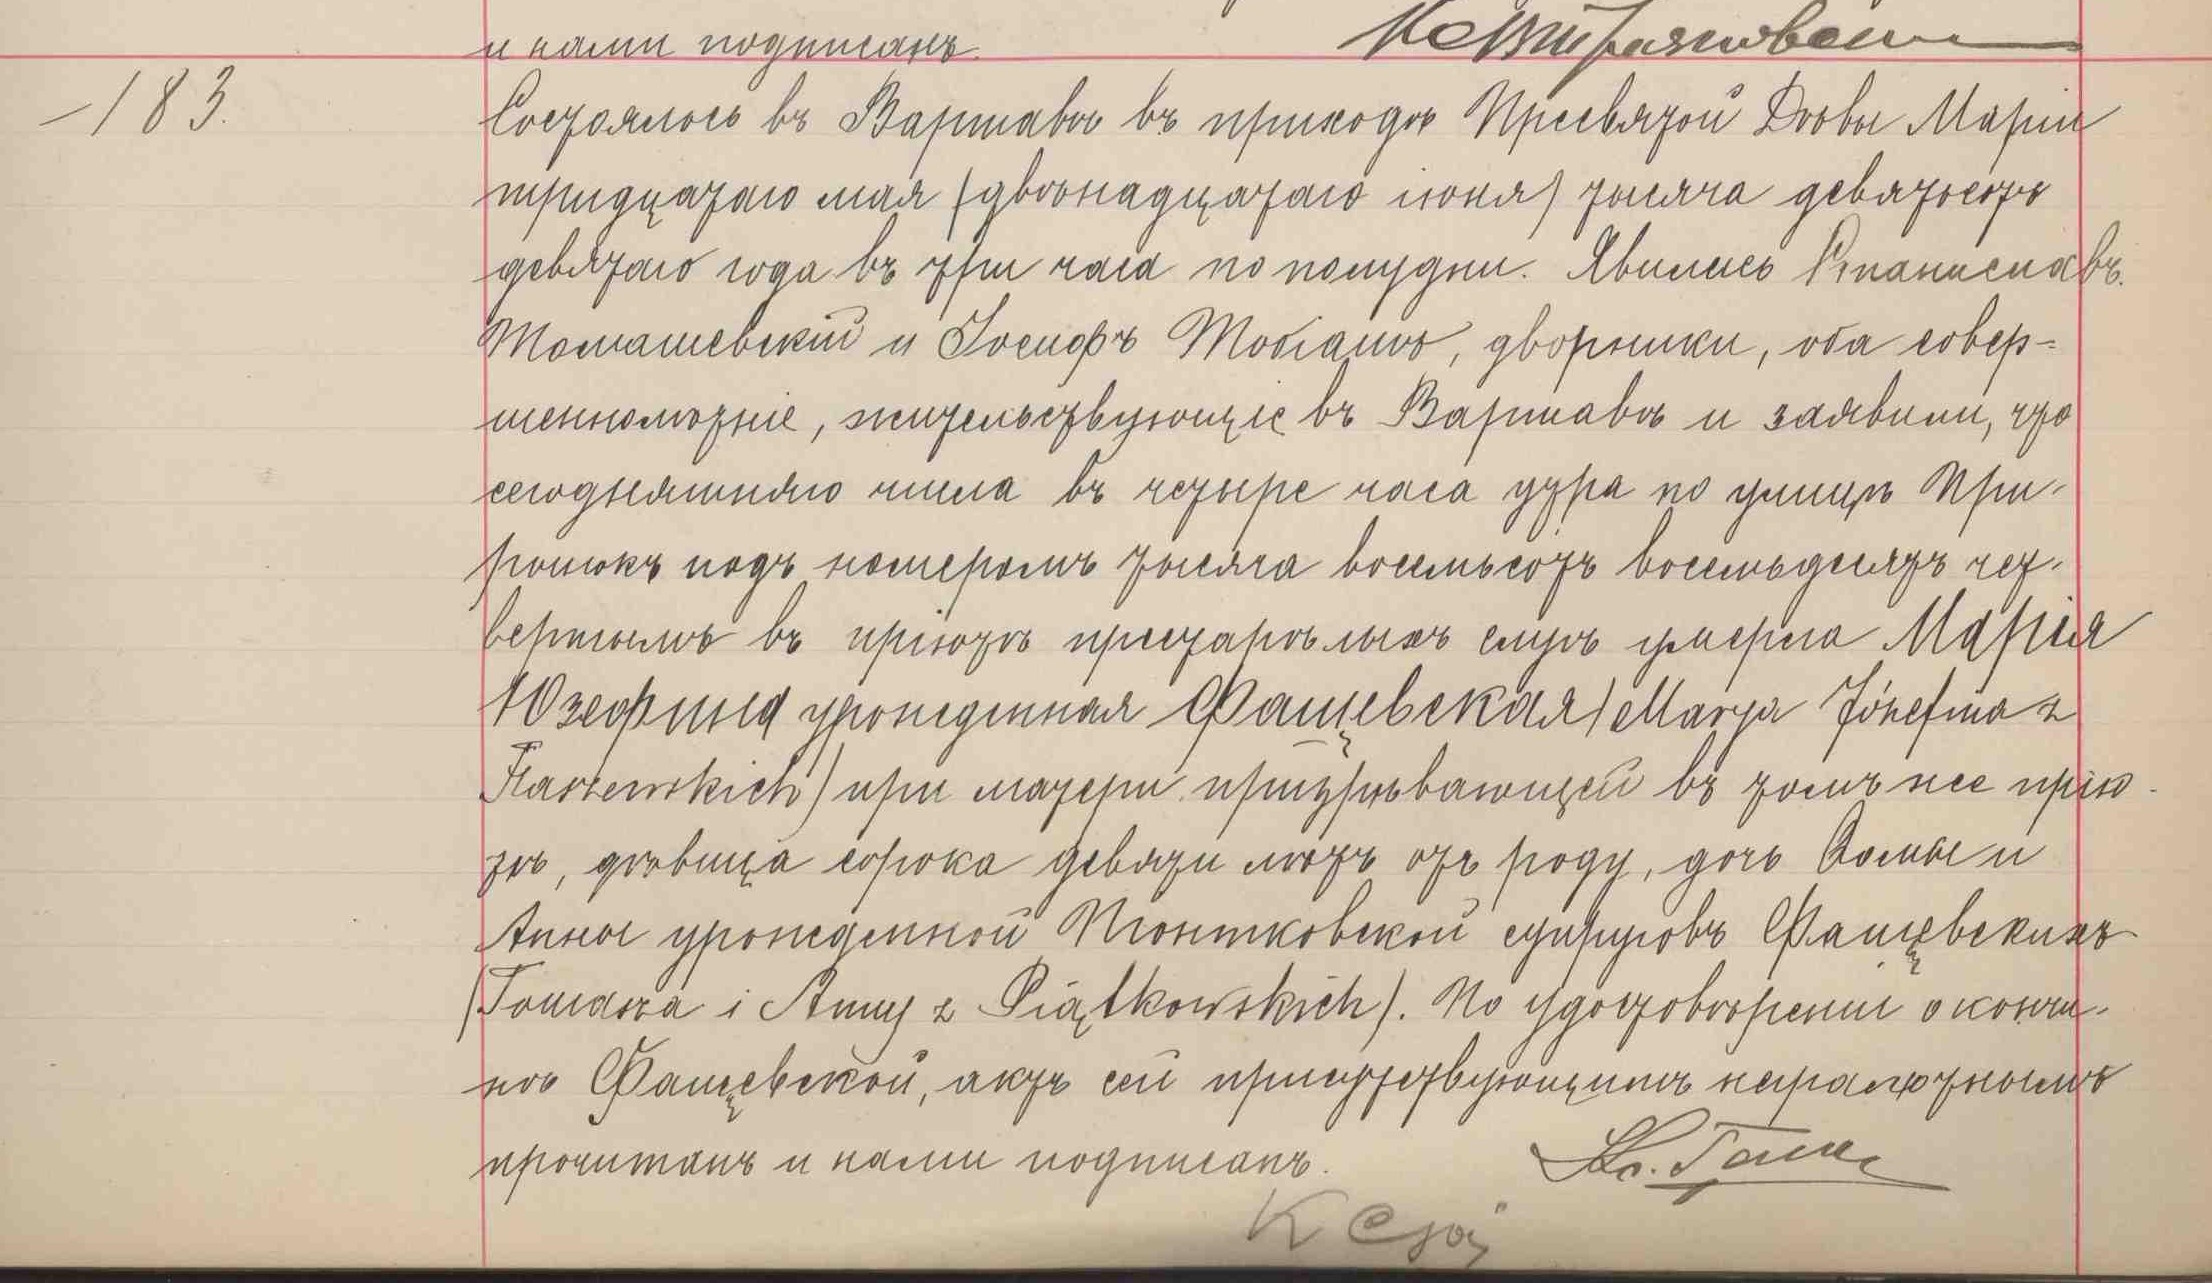 и нами подписанъ.
183.
Состоялось въ Варшавѣ въ приходѣ Пресвятой Дѣвы Маріи
тридцатаго мая (двѣнадцатаго іюня) тысяча девятьсотъ
девятаго года въ три часа по полудни. Явились Станиславъ
Томашевскій и Іосифъ Тобіашъ, дворники, оба совер-
шеннолѣтніе, жительствующіе въ Варшавѣ и заявили, что
сегодняшняго числа въ четыре часа утра по улицѣ При-
рынокъ подъ номеромъ тысяча восемьсотъ восемьдесятъ чет-
вертымъ въ пріютѣ престарѣлыхъ слугъ умерла Марія
Юзефина урожденная Фащевская (Marya Józefina z
Faszewskich) при матери притрывающей въ томъ же прію-
тѣ, дѣвица сорока девяти лѣтъ отъ роду, дочь Ѳомы и
Анны урожденной Піонтковской супруговъ Фащевскихъ
(Tomasza i Anny z Piątkowskich). По удостовѣреніи о кончи-
нѣ Фащевской, актъ сей присутствующимъ неграмотнымъ
прочитанъ и нами подписанъ.